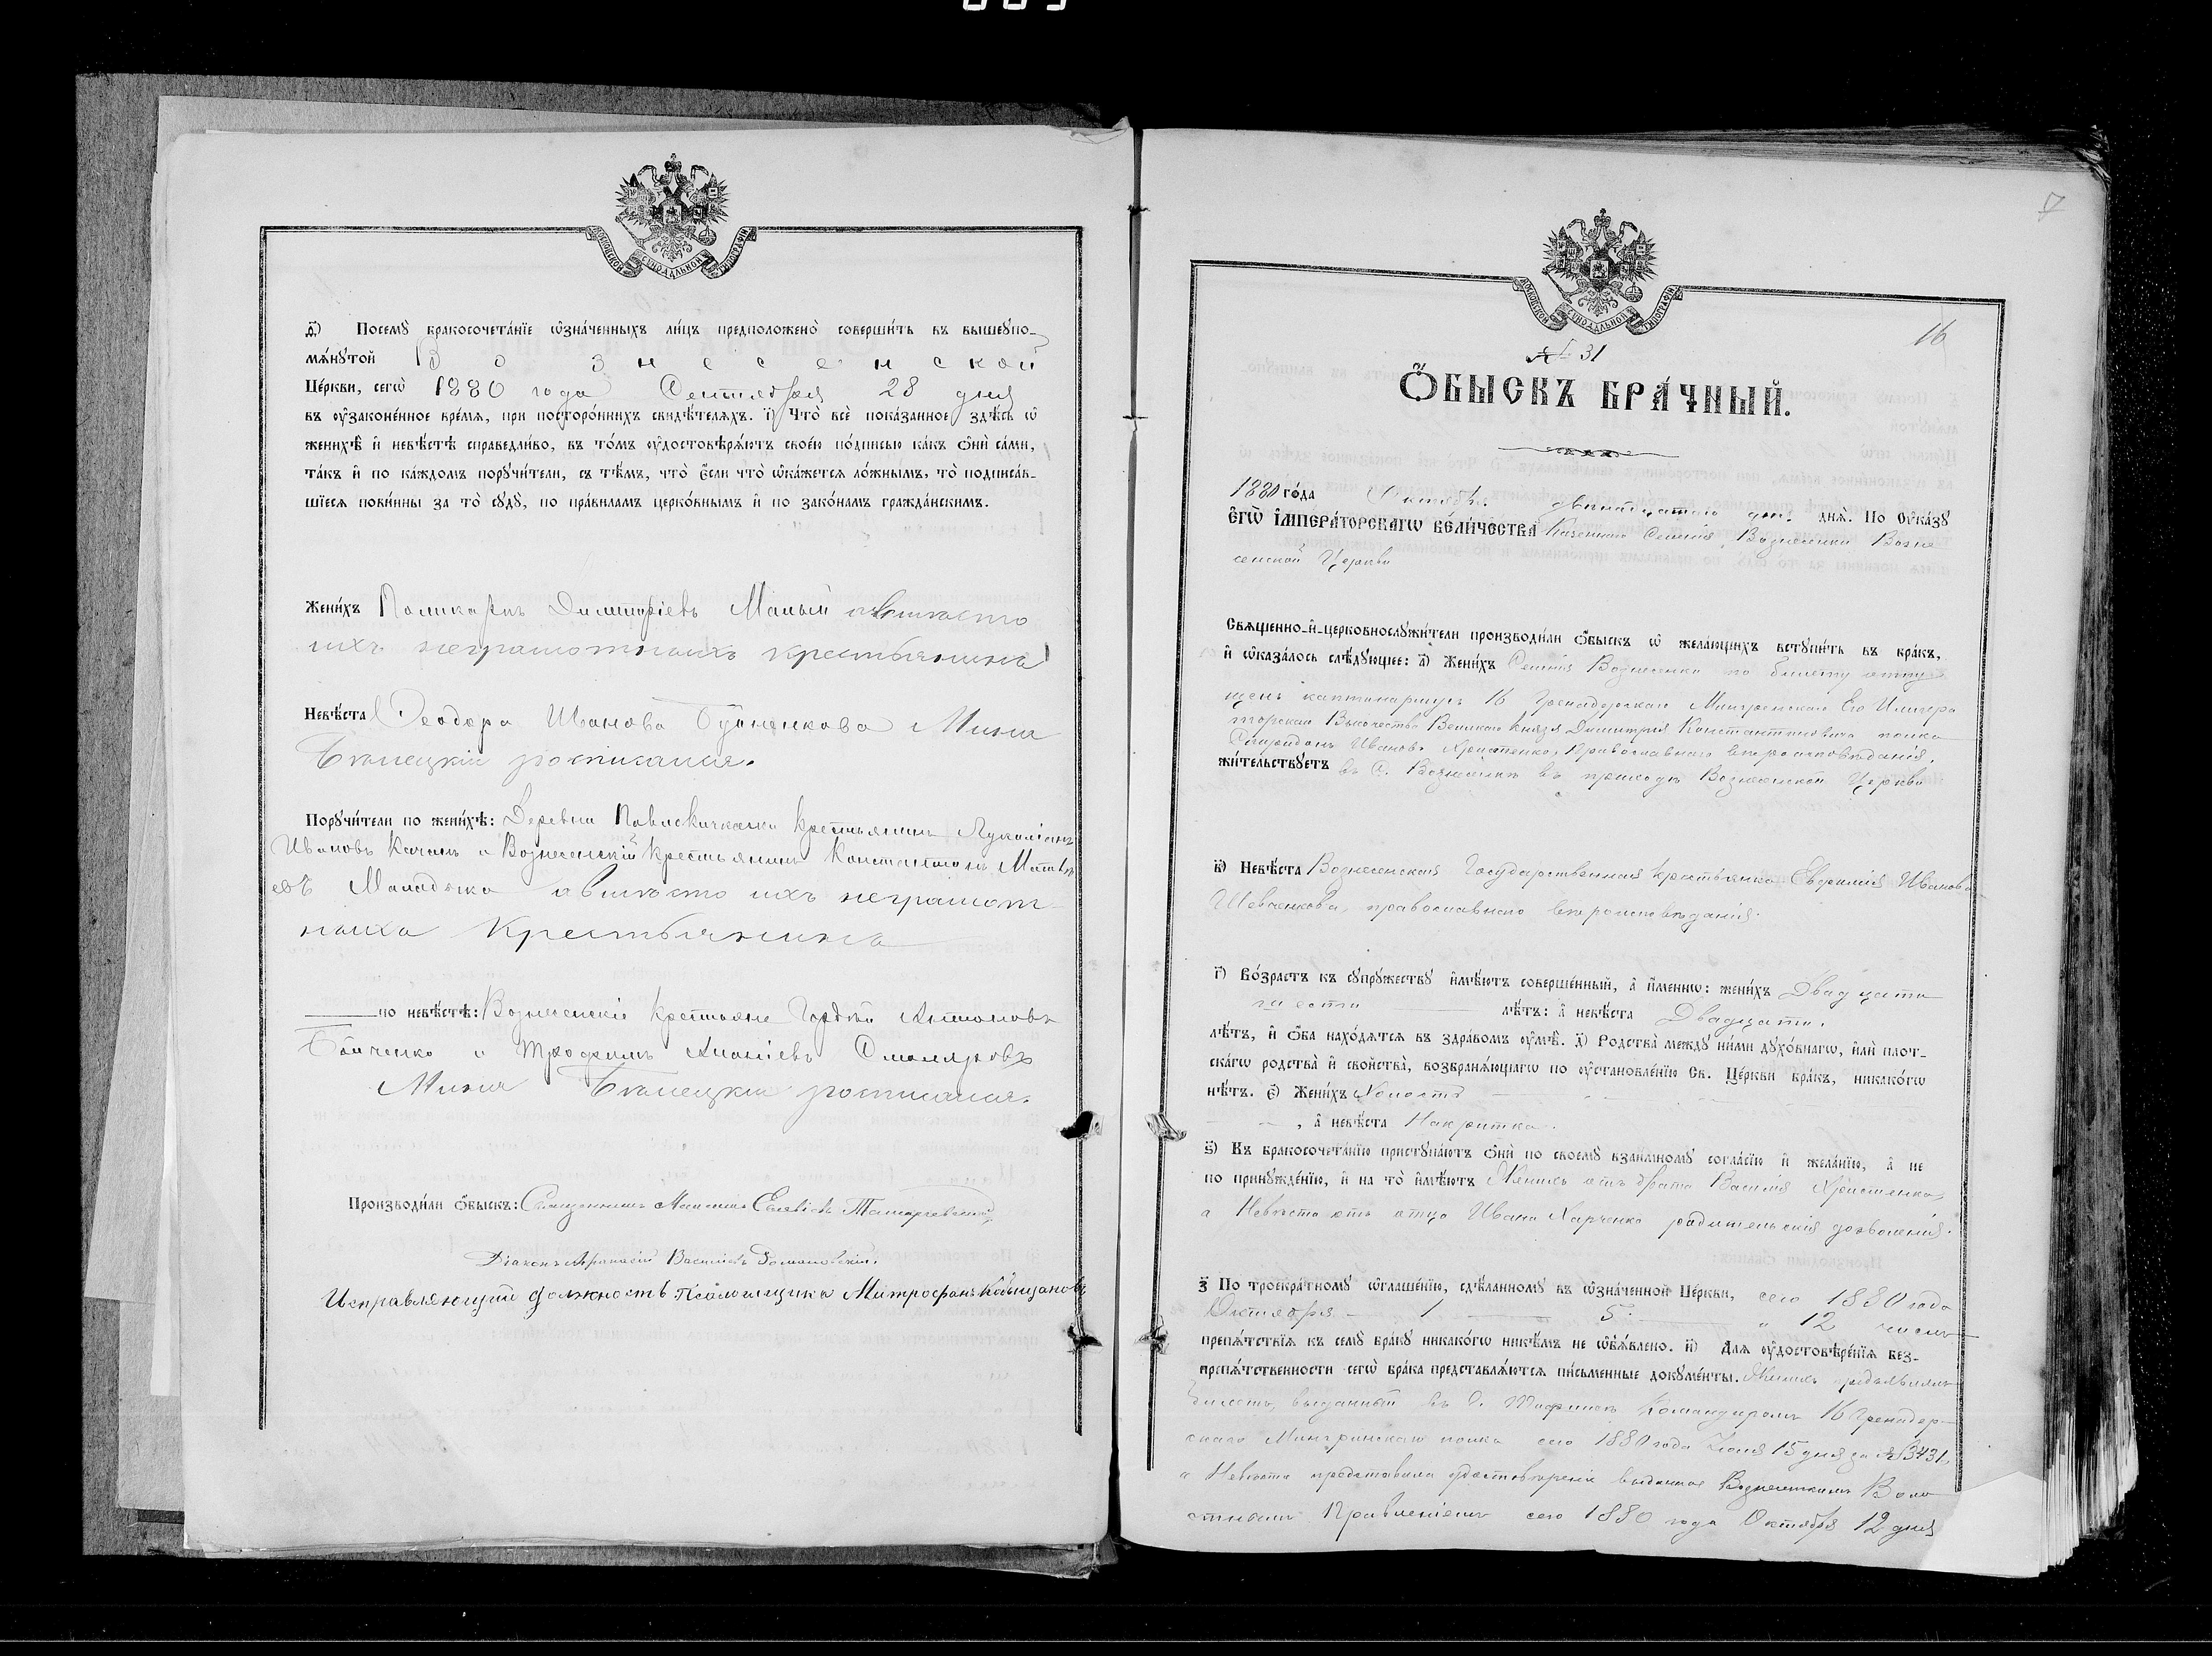 МОСКОВСКОЙ СѴНОДАЛЬНОЙ ТИПОГРАФІИ
ѳ҃) Посемꙋ бракосочета́нїе ѡ҆зна́ченныхъ ли́цъ предположено̀ соверши́ть въ вышеꙋпо-
мѧ́нꙋтой Вознесенской
Це́ркви, сегѡ̀ 1880 года Сентября 28 дня
въ ᲂу҆законе́нное вре́мѧ, при посторо́ннихъ свидѣ́телѧхъ. і҃) Что̀ всѐ пока́занное здѣ́сь ѡ҆
женихѣ̀ и҆ невѣ́стѣ справедли́во, въ то́мъ ᲂу҆достовѣрѧ́ютъ свое́ю по́дписью ка́къ ѻ҆нѝ са́ми,
та́къ и҆ по ка́ждомъ порꙋчи́тели, съ тѣ́мъ, что̀ є҆́сли что̀ ѡ҆ка́жетсѧ ло́жнымъ, то̀ подписа́в-
шїесѧ пови́нны за то̀ сꙋдꙋ̀, по пра́виламъ церко́внымъ и҆ по зако́намъ гражда́нскимъ.
Жени́хъ Поликарпъ Димитріевъ Малый а вместо
ихъ неграмотныхъ крестьянина
Невѣ́ста Ѳеодора Иванова Мина
Белецкій росписался.
Порꙋчи́тели по женихѣ̀: Деревни Павлокичкаса Крестьянинъ
Ивановъ Качанъ и Вознесенскій Крестьянинъ Константинъ Матвѣ
евъ а вместо ихъ неграмот
ныхъ Крестьянина
по невѣ́стѣ: Вознесенскіе Крестьяне Гордѣй Антоновъ
Бойченко и Трофимъ Смоляровъ
Мина Белецкій росписался.
Производи́ли ѻ҆́быскъ: Священникъ
Діаконъ Афанасій Васильевъ
Исправляющій должность Псаломщика Митрофанъ
7
МОСКОВСКОЙ СѴНОДАЛЬНОЙ ТИПОГРАФІИ
16
№ 31
Ѻ҆́БЫСКЪ БРА́ЧНЫЙ.
1880 го́да Октября двенадцатаго дня днѧ̀. По Оу҆ка́зꙋ
Є҆ГѠ̀ І҆МПЕРА́ТОРСКАГѠ ВЕЛИ́ЧЕСТВА Казеннаго Селенія Вознесенки Возне
сенской Церкви
Свѧщенно-и҆-церковнослꙋжи́тели производи́ли ѻ҆́быскъ ѡ҆ жела́ющихъ встꙋпи́ть въ бра́къ,
и҆ ѡ҆каза́лось слѣ́дꙋющее: а҃) Жени́хъ Селенія Вознесенки по билету отпу
щенъ каптенармусъ 16 Гренадерскаго Мингрельскаго Его Импера
торскаго Высочества Великаго Князя Димитрія Константиновича полка
Спиридонъ Ивановъ Христенко, Православнаго вероисповеданія,
жи́тельствꙋетъ въ С. Вознесенке въ приходе Вознесенской Церкви
в҃) Невѣ́ста Вознесенская Государственная крестьянка Евфимія Иванова
Шевченкова, православнаго вероисповеданія.
г҃) Во́зрастъ къ сꙋпрꙋ́жествꙋ и҆мѣ́ютъ соверше́нный, а҆ и҆́меннѡ: жени́хъ Двадцати
шести лѣ́тъ: а҆ невѣ́ста Двадцати.
лѣ́тъ, и҆ ѻ҆́ба нахо́дѧтсѧ въ здра́вомъ ᲂу҆мѣ̀. д҃) Родства̀ междꙋ ни́ми дꙋхо́внагѡ, и҆лѝ плот-
ска́гѡ родства̀ и҆ свойства̀, возбранѧ́ющагѡ по ᲂу҆становле́нїю Св. Це́ркви бра́къ, никако́гѡ
нѣ́тъ. є҃) Жени́хъ Холостъ
, а҆ невѣ́ста Накритка.
ѕ҃) Къ бракосочета́нїю пристꙋпа́ютъ ѻ҆нѝ по своемꙋ̀ взаи́мномꙋ согла́сїю и҆ жела́нїю, а҆ не
по принꙋжде́нїю, и҆ на то̀ и҆мѣ́ютъ Женихъ отъ брата Василія Христенка,
а Невеста отъ отца Ивана Харченко родительскія дозволенія.
з҃) По троекра́тномꙋ ѡ҆глаше́нїю, сдѣ́ланномꙋ въ ѡ҆зна́ченной Це́ркви, сего 1880 года
Октября 1 5 " 12 числъ
препѧ́тствїѧ къ семꙋ̀ бра́кꙋ никако́гѡ никѣ́мъ не ѡ҆б̾ѧ́влено. и҃) Длѧ ᲂу҆достовѣре́нїѧ без-
препѧ́тственности сегѡ̀ бра́ка представлѧ́ютсѧ пи́сьменные докꙋме́нты. Женихъ предъявилъ
билетъ, выданный въ г. Тифлисе Командиромъ 16 Гренадер-
скаго Мингрельскаго полка сего 1880 года Іюля 15 дня за № 3431,
а Невеста представила удостовереніе выданное Вознесенскимъ Воло
стнымъ Правленіемъ сего 1880 года Октября 12 дня